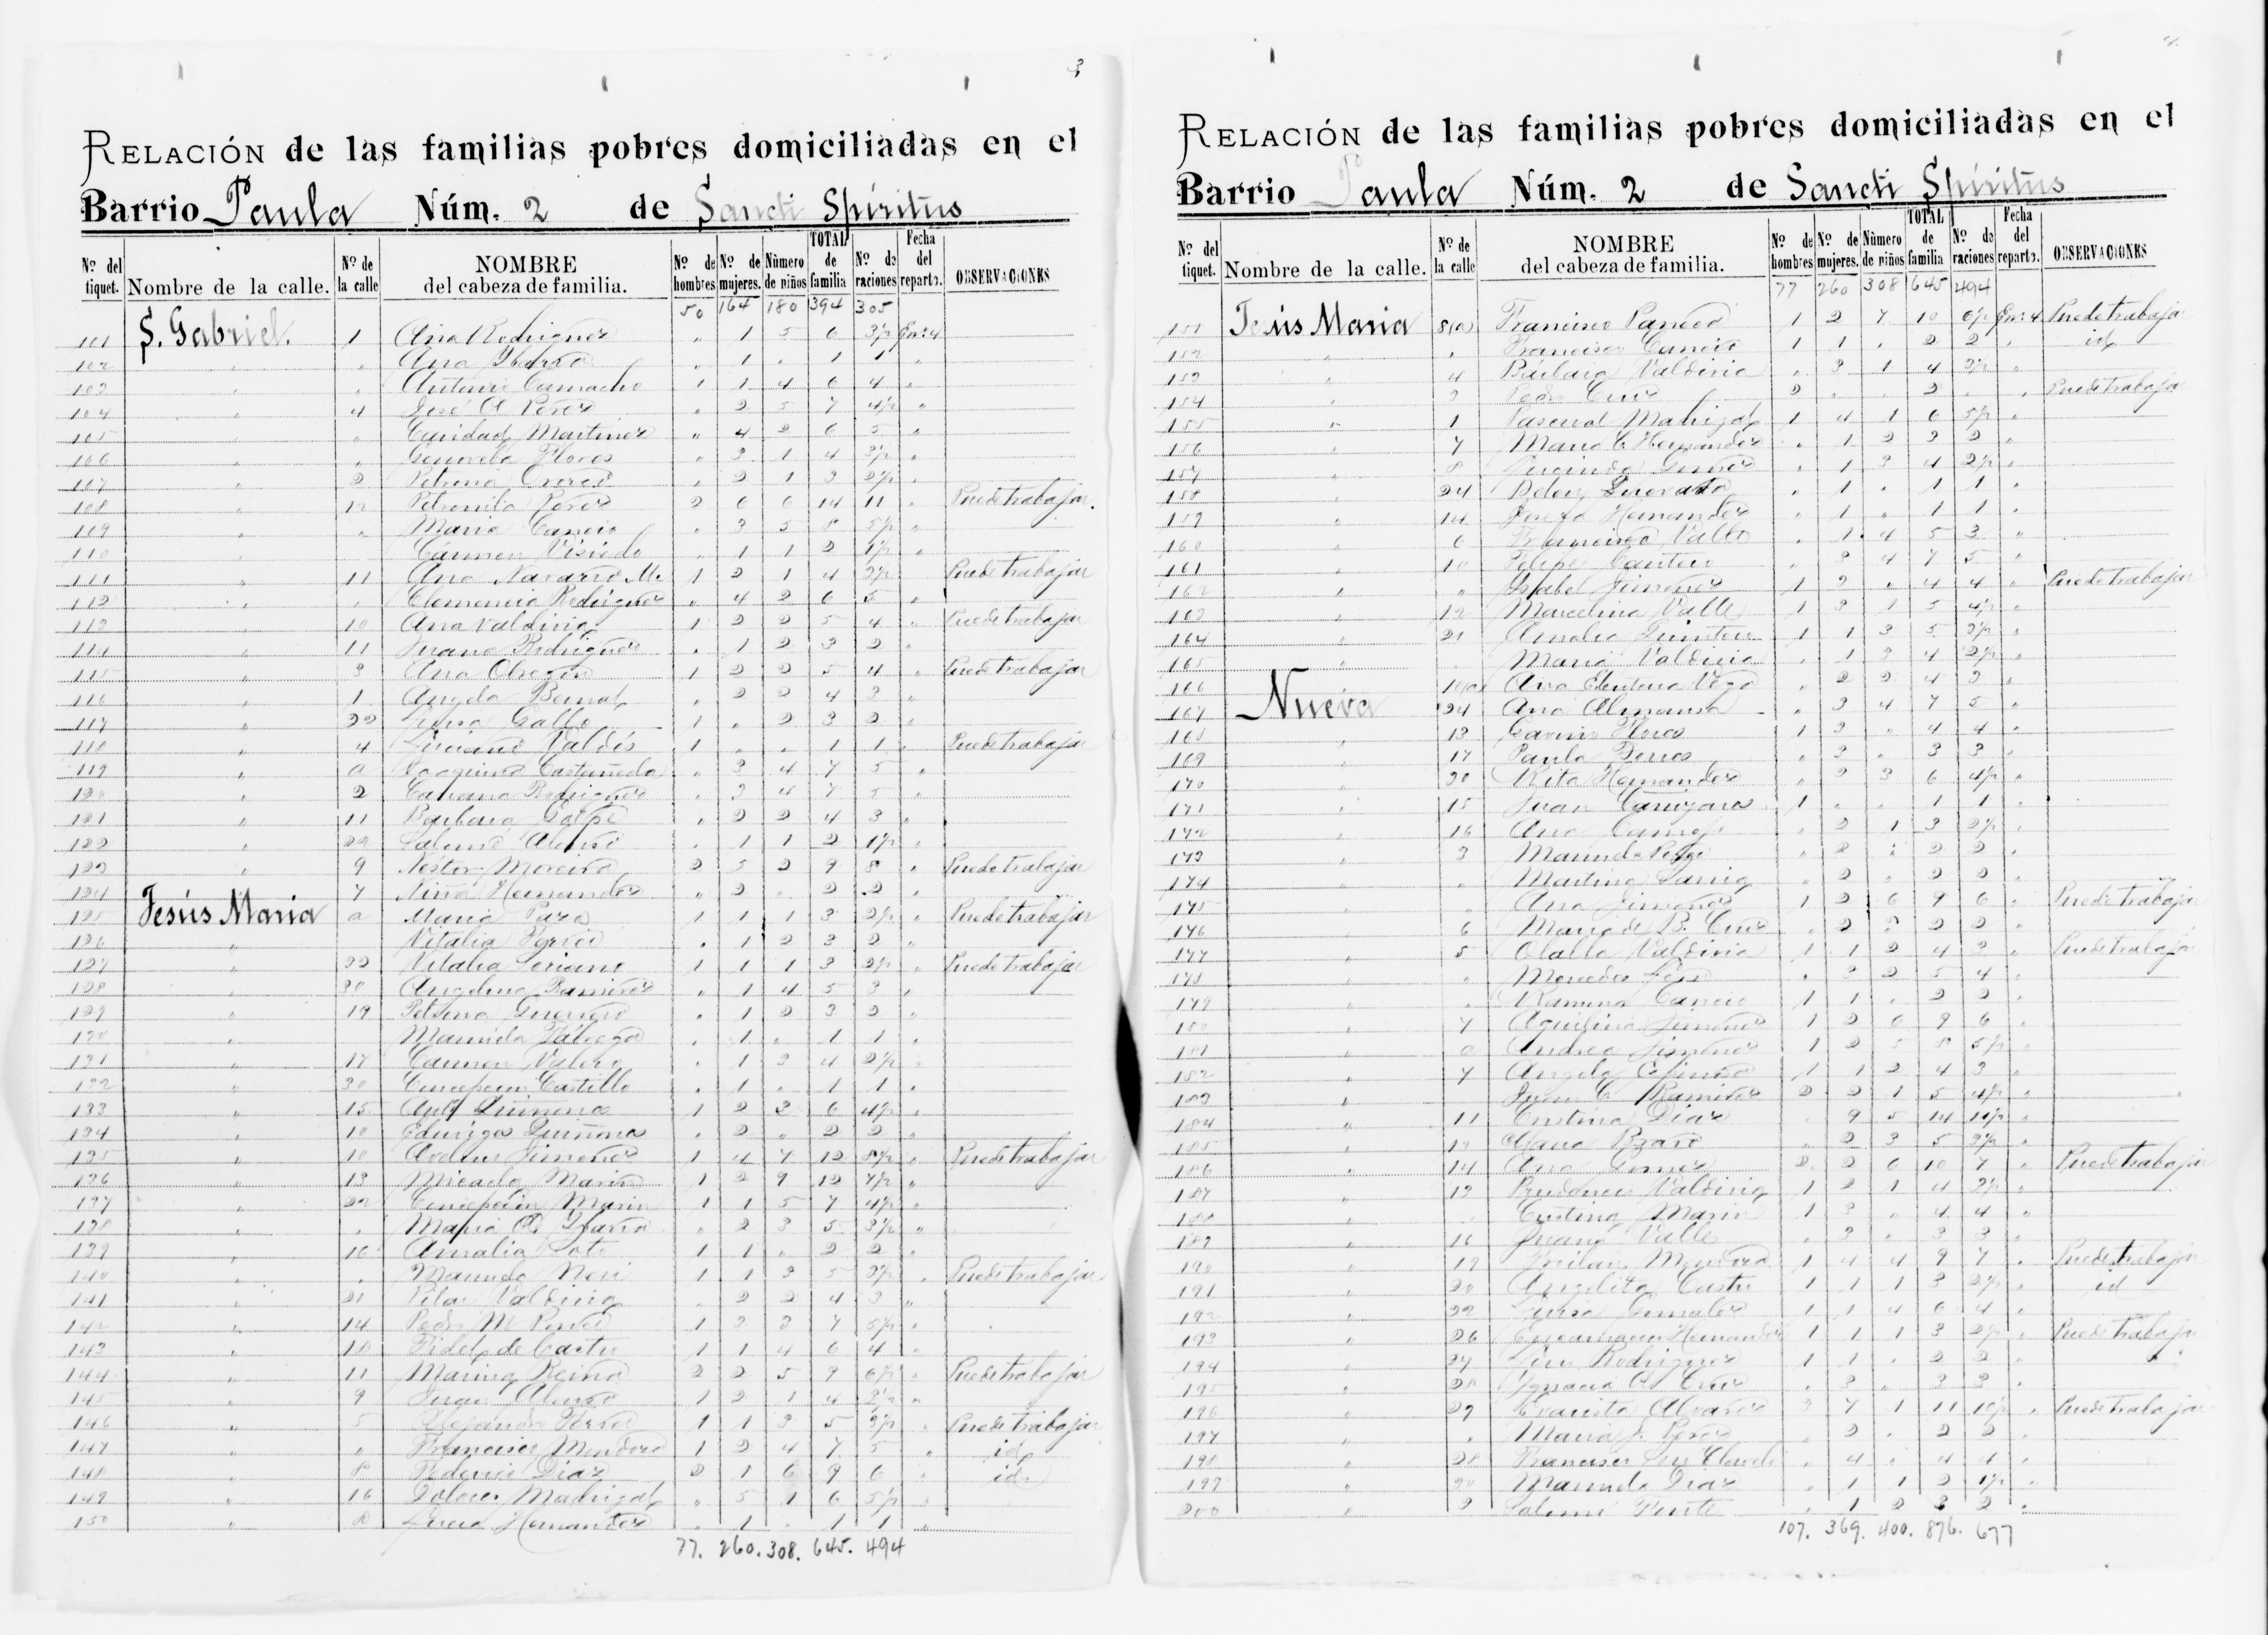 3
RELACIÓN de las familias pobres domiciliadas en el
Barrio Paula Núm. 2 de Sancti Spiritus
Nº del tiquet. Nombre de la calle. Nº de la calle NOMBRE del cabeza de familia. Nº de hombres Nº de mujeres. Número de niños TOTAL de familia Nº de raciones Fecha del reparto. OBSERVACIONES
50 164 180 394 305
101 S. Gabriel. 1 Ana Rodriguez " 1 5 6 3½ En: 4
102 " " Ana Ybarra " 1 " 1 1 "
103 " " Antonio Camacho 1 1 4 6 4 "
104 " 4 José A Perez " 2 5 7 4½ "
105 " " Caridad Martinez " 4 2 6 5 "
106 " " Genoveva Flores " 3 1 4 3½ "
107 " 2 Petrona " 2 1 3 2½ "
108 " 12 Petronila Perez 2 6 6 14 11 " Puede trabajar.
109 " " Maria Cancio " 3 5 8 5½ "
110 " Cármen " 1 1 2 1½ "
111 " 11 Ana Navarro M. 1 2 1 4 3½ Puede trabajar
112 " " Clemencia Rodriguez " 4 2 6 5 "
113 " 10 Ana Valdivia 1 2 2 5 4 " Puede trabajar
114 " 11 Juana Rodriguez " 1 2 3 2 "
115 " 3 Ana Obregon 1 2 2 5 4 " Puede trabajar
116 " 1 Angela Bernal " 2 2 4 3 "
117 " 22 Luisa Gallo 1 " 2 3 2 "
118 " 4 Luciano Valdés 1 " " 1 1 " Puede trabajar
119 " a Joaquina Castañeda " 3 4 7 5 "
120 " 2 Rodriguez " 3 4 7 5 "
121 " 11 Barbara " 2 2 4 3 "
122 " 22 Salomé Alonso " 1 1 2 1½ "
123 " 9 Néstor Moreira 2 5 2 9 8 " Puede trabajar
124 7 Nina Hernandez " 2 " 2 2 "
125 Jesús Maria a Maria 1 1 1 3 2½ " Puede trabajar
126 " Vitalia " 1 2 3 2 "
127 " 32 Vitalia Soriano 1 1 1 3 2½ " Puede trabajar
128 " 30 Angelina Ramirez " 1 4 5 3 "
129 " 19 Petrona Guerrero " 1 2 3 2 "
130 Manuela " 1 " 1 1 "
131 " 17 Carmen Valero " 1 3 4 2½ "
132 " 30 Concepcion Castillo " 1 " 1 1 "
133 " 15 Quiñones 1 2 3 6 4½ "
134 " 10 Eduviges Quiñones " 2 " 2 2 "
135 " 10 Avelino Jimenez 1 4 7 12 8½ " Puede trabajar
136 " 13 Micaela Marin 1 2 9 12 7½ "
137 " 22 Concepción Marin 1 1 5 7 4½ "
138 " " Maria Ybarra " 2 3 5 3½ "
139 " 16 Amalia Soto 1 1 " 2 2 "
140 " " Manuela Neri 1 1 3 5 3½ " Puede trabajar
141 " 21 Pilar Valdivia " 2 2 4 3 "
142 " 14 Pedro M 1 3 3 7 5½ "
143 " 10 Fidel de Castro 1 1 4 6 4 "
144 " 11 Marina Reina 2 2 5 9 6½ " Puede trabajar
145 " 9 Juan Alonso 1 2 1 4 3½ "
146 " 5 Alejandro 1 1 3 5 3½ " Puede trabajar
147 " " Francisco Mendoza 1 2 4 7 5 " id.
148 " 8 Federico Diaz 2 1 6 9 6 " id.
149 " 16 Dolores Madrigal " 5 1 6 5½ "
150 " Hernandez " 1 " 1 1 "
77. 260. 308. 645. 494
4.
RELACIÓN de las familias pobres domiciliadas en el
Barrio Paula Núm. 2 de Sancti Spiritus
Nº del tiquet. Nombre de la calle. Nº de la calle NOMBRE del cabeza de familia. Nº de hombres Nº de mujeres. Número de niños TOTAL de familia Nº de raciones Fecha del reparto. OBSERVACIONES
77 260 308 645 494
151 Jesús Maria Francisco 1 2 7 10 6½ En: 4 Puede trabajar
152 " " Francisco Cancio 1 1 " 2 2 " id
153 " 4 Bárbara Valdivia " 3 1 4 3½ "
154 3 Pedro Cruz 2 " " 2 " Puede trabajar
155 " 1 Pascual Madrigal 1 4 1 6 5½ "
156 " 7 Maria C. Hernandez " 1 2 3 2 "
157 " 8 Gomez " 1 3 4 2½ "
158 " 24 Belen " 1 " 1 1 "
159 " 14 Josefa Hernandez " 1 " 1 1 "
160 " 6 Francisca Valle " 1 4 5 3 "
161 " 10 Felipe " 3 4 7 5 "
162 " " Ysabel Jimenez 1 3 " 4 4 " Puede trabajar
163 " 12 Marcelina Valle 1 3 1 5 4½ "
164 " 21 Amalia Quintero 1 1 3 5 3½ "
165 " Maria Valdivia " 1 3 4 2½ "
166 Ana Vega " 2 2 4 3 "
167 Nueva 24 Ana Almansa " 3 4 7 5 "
168 " 13 1 3 " 4 4 "
169 " 17 Paula " 3 " 3 3 "
170 " 30 Rita Hernandez " 3 3 6 4½ "
171 " 15 Juan Cañizares 1 " " 1 1 "
172 " 16 Ana " 2 1 3 2½ "
173 " 3 Manuela " 2 " 2 2 "
174 " " Martina " 2 " 2 2 "
175 " " Ana Jimenez 1 2 6 9 6 " Puede trabajar
176 " 6 Maria de B. Cruz " 2 " 2 2 "
177 " 5 Olalla Valdivia 1 1 2 4 3 " Puede trabajar
178 " " Mercedes " 3 2 5 4 "
179 " " Ramona Cancio 1 1 " 2 2 "
180 " 7 Aquilina Jimenez 1 2 6 9 6 "
181 " a Andrea Jimenez 1 2 5 8 5½ "
182 " 7 Angela 1 1 2 4 3 "
183 " Juan C. Ramirez 2 2 1 5 4½ "
184 " 11 Cristina Diaz " 9 5 14 11½ "
185 " 12 " 2 3 5 3½ "
186 " 14 Ana Gomez 2 2 6 10 7 " Puede trabajar
187 " 13 Prudencio Valdivia 1 2 1 4 3½ "
188 " Cristina Marin 1 3 " 4 4 "
189 " 16 Juana Valle " 3 " 3 3 "
190 " 19 Froilan Mendoza 1 4 4 9 7 " Puede trabajar
191 " 20 Angelita Castro 1 1 1 3 2½ " id
192 " 22 Luisa Gonzalez 1 1 4 6 4 "
193 " 26 Encarnacion Hernandez 1 1 1 3 2½ " Puede trabajar
194 " 27 Rodriguez 1 1 " 2 2 "
195 " 28 Ygnacia Cruz " 3 " 3 3 "
196 " 29 Evaristo Alvarez 3 7 1 11 10½ " Puede trabajar
197 " " Maria J. Perez " 2 " 2 2 "
198 " 28 Francisca " 4 " 4 4 "
199 " Manuela Diaz " 1 1 2 1½ "
200 " Salomé " 1 2 3 2 "
107. 369. 400. 876. 677